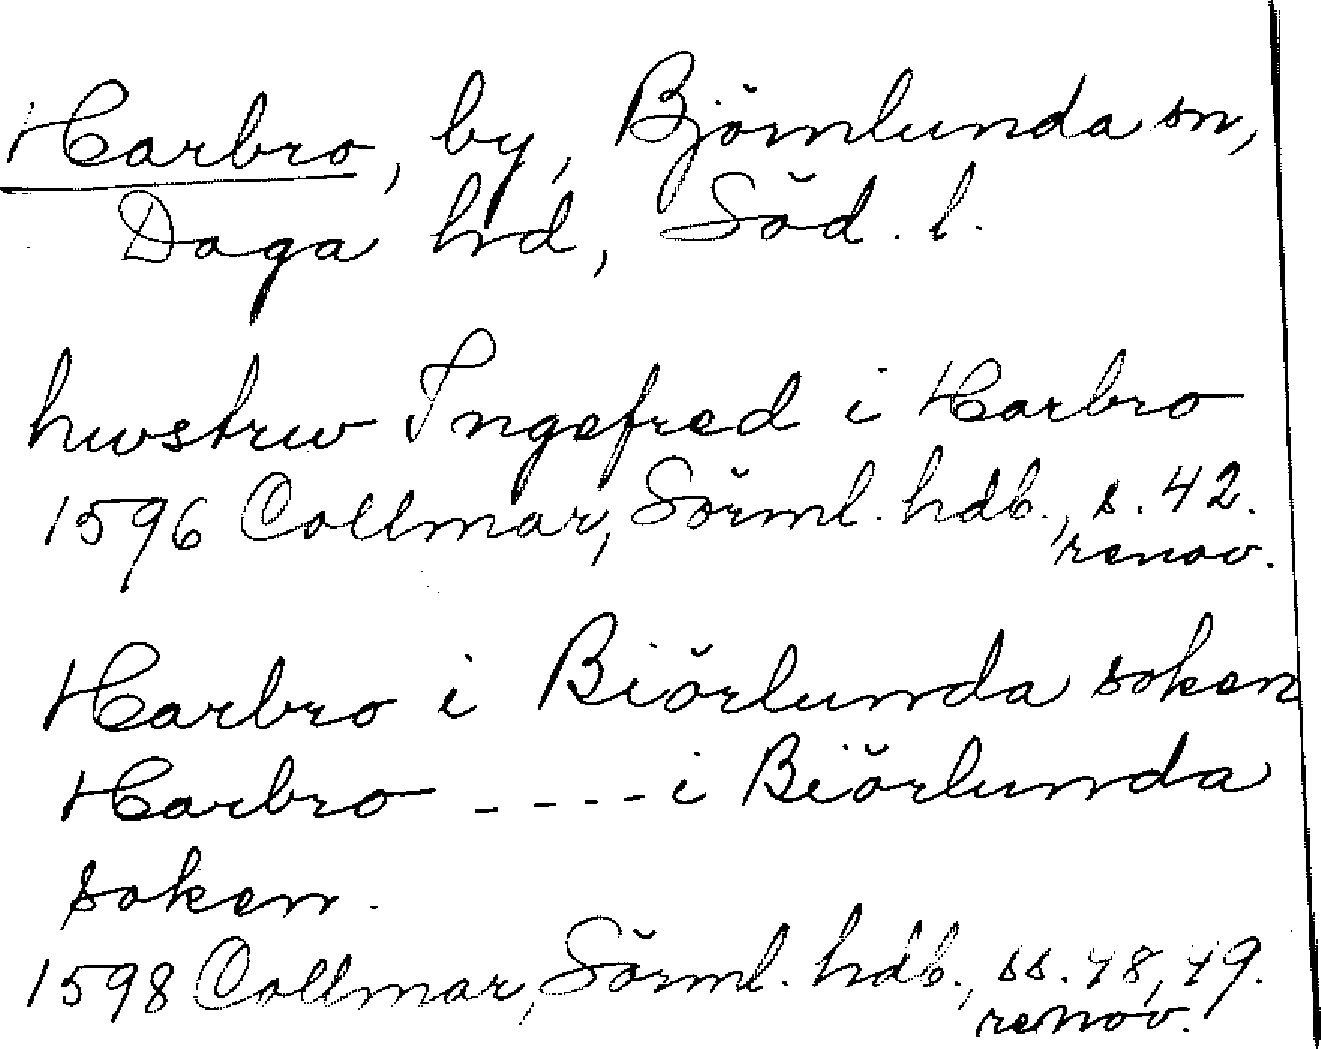 Harbro, by, Björnlunda sn,
Daga hd, Söd. l.
hwstrw Ingefred i Harbro
1596 Collmar, Sörml. hdb., s. 42.
renov.
Harbro i Biörlunda soken
Harbro - - - - i Biörlunda
soken.
1598 Collmar, Sörml. hdb., ss. 48, 49.
renov.